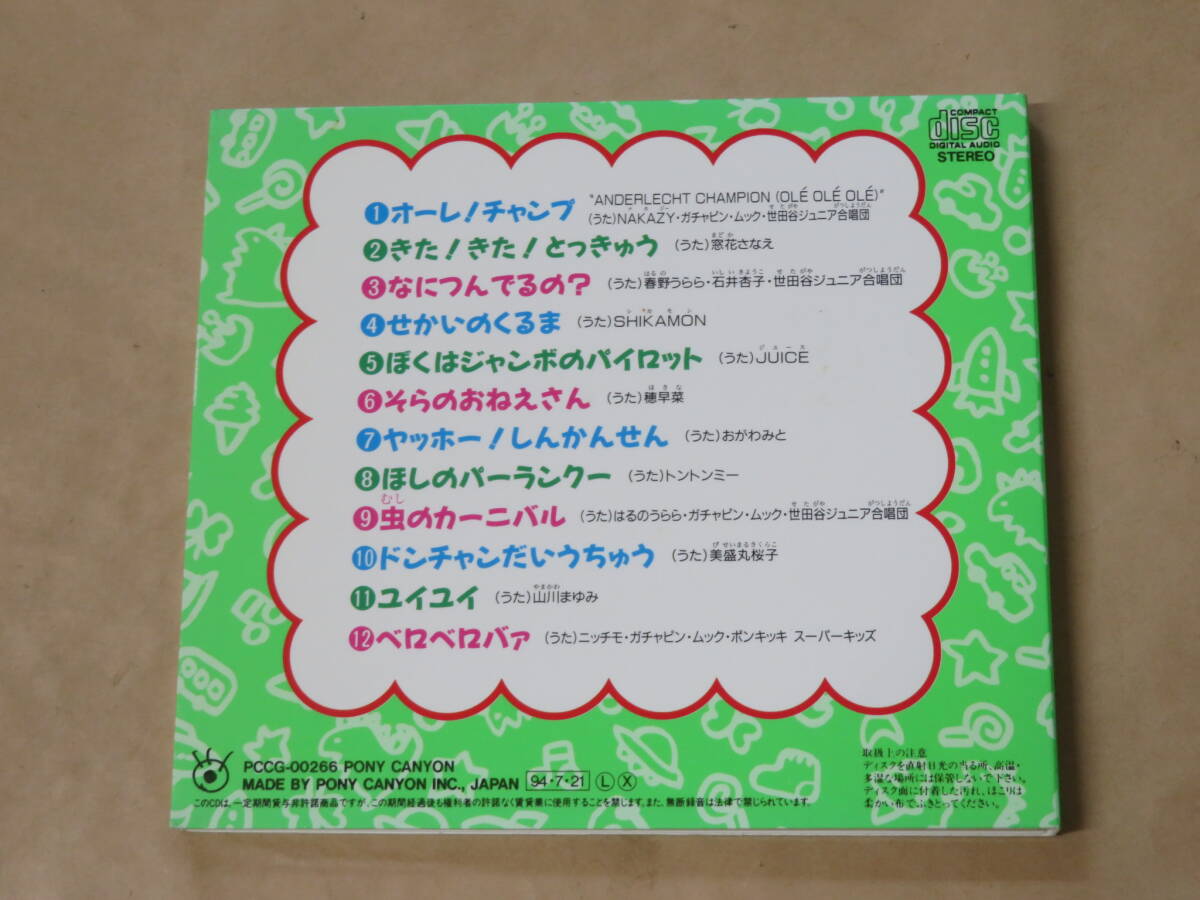 COMPACT
disc
DIGITAL AUDIO
STEREO
"ANDERLECHT CHAMPION (OLÉ OLÉ OLÉ)"
❶オーレ!チャンプ (うた)NAKAZY・ガチャピン・ムック・世田谷ジュニア合唱団
❷きた!きた!とっきゅう (うた)窓花さなえ
❸なにつんでるの? (うた)春野うらら・石井杏子・世田谷ジュニア合唱団
❹せかいのくるま (うた)SHIKAMON
❺ぼくはジャンボのパイロット (うた)JUICE
❻そらのおねえさん (うた)穂早菜
❼ヤッホー!しんかんせん (うた)おがわみと
❽ほしのパーランクー (うた)トントンミー
❾虫のカーニバル (うた)はるのうらら・ガチャピン・ムック・世田谷ジュニア合唱団
❿ドンチャンだいうちゅう (うた)美盛丸桜子
⓫ユイユイ (うた)山川まゆみ
⓬ベロベロバァ (うた)ニッチモ・ガチャピン・ムック・ポンキッキ スーパーキッズ
PCCG-00266 PONY CANYON
MADE BY PONY CANYON INC., JAPAN 94・7・21 L X
このCDは、一定期間貸与非許諾商品ですが、この期間経過後も権利者の許諾なく賃貸業に使用することを禁じます。また、無断録音は法律で禁じられています。
取扱上の注意
ディスクを直射日光の当る所、高温・
多湿な場所には保管しないで下さい。
ディスク面に付着した汚れ、ほこりは
柔かい布でふきとってください。